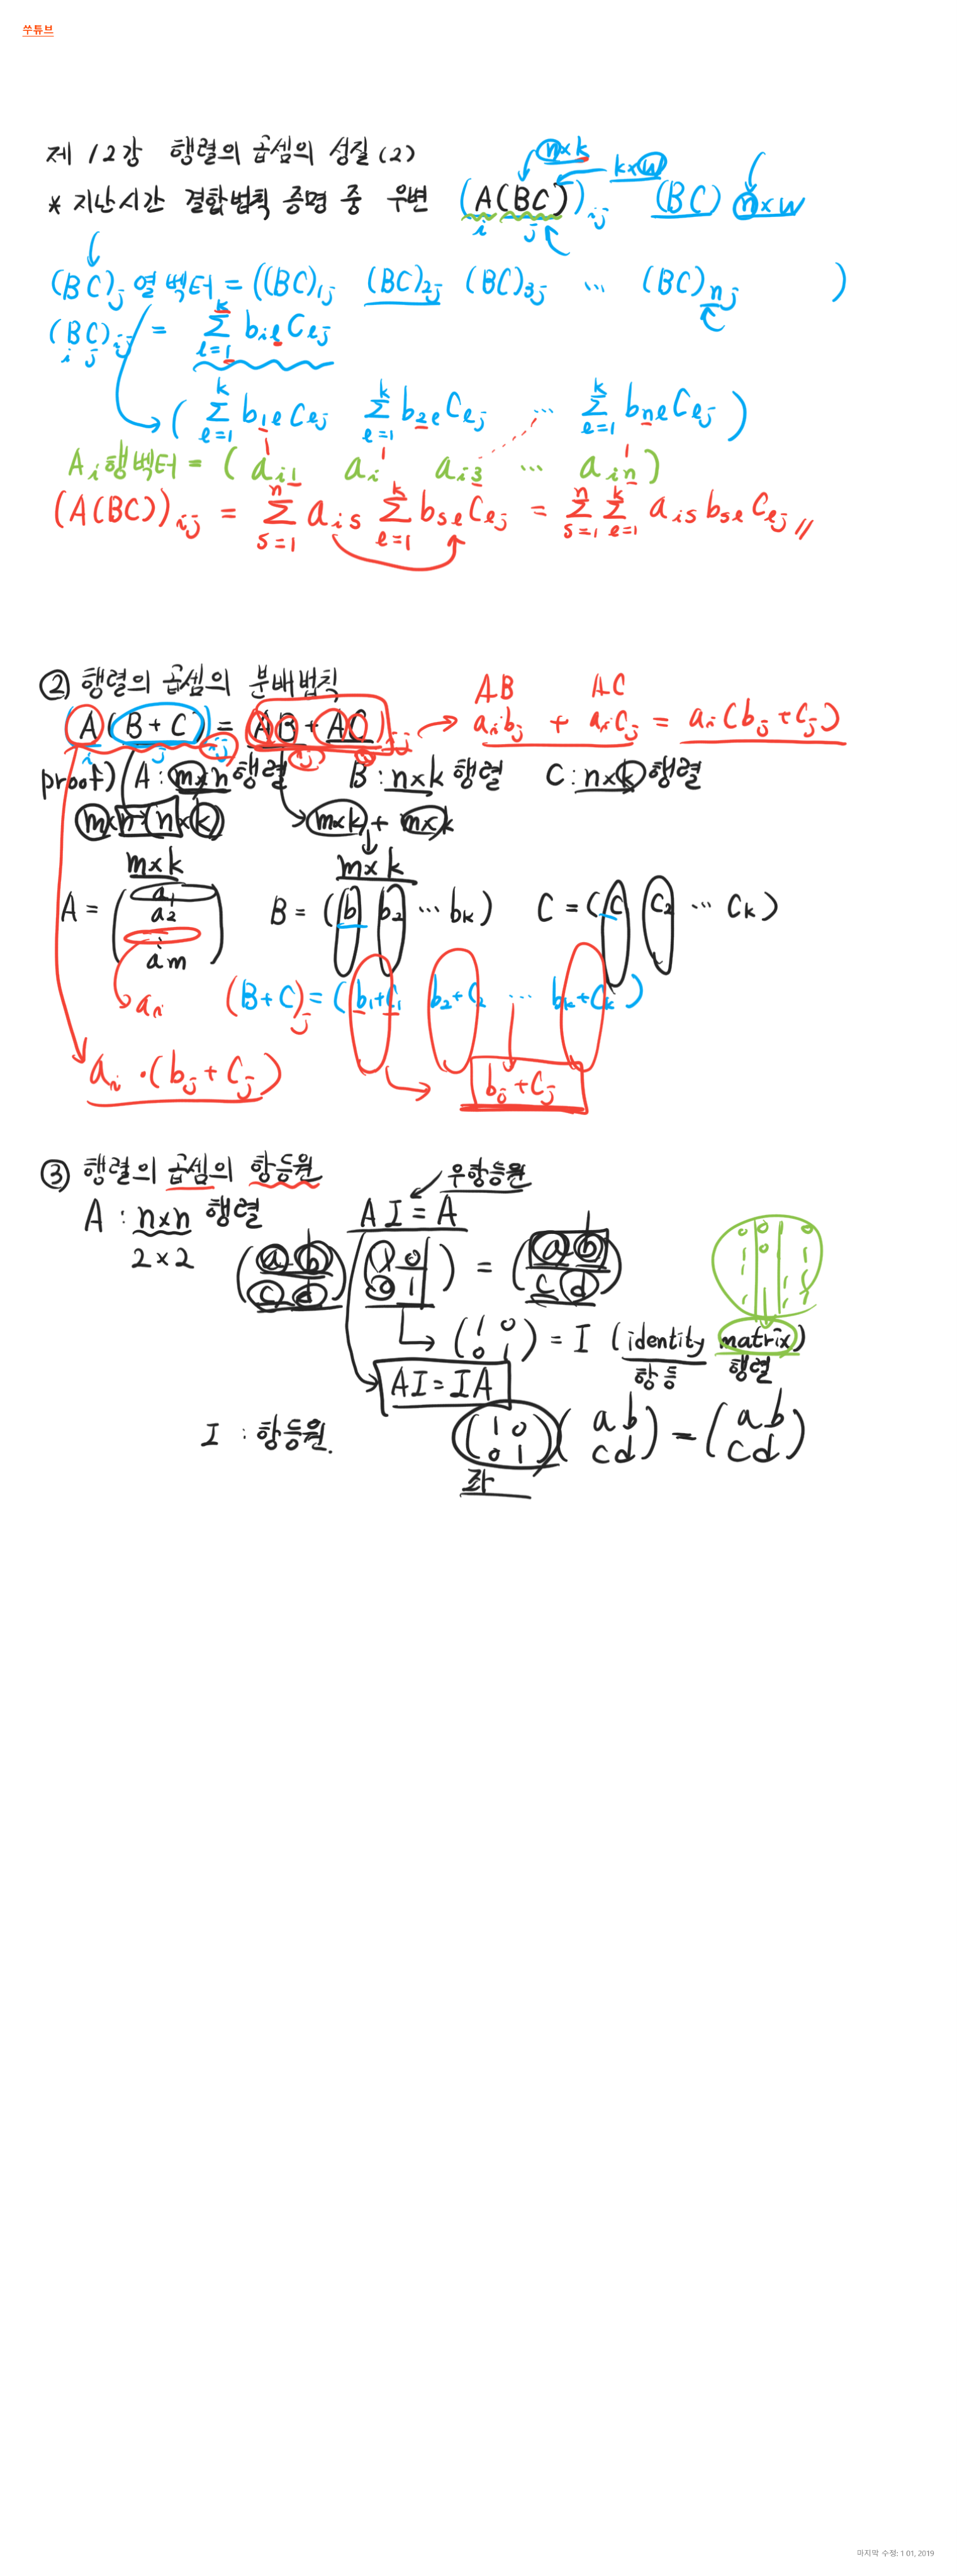 쑤튜브
제 12강 행렬의 곱셈의 성질 (2)
n×k
k×w
* 지난시간 결합법칙 증명 중 우변 (A(BC))ij (BC) n×w
i j
(BC)j 열벡터 = ((BC)1j (BC)2j (BC)3j ... (BC)nj )
(BC)ij = Σ(l=1→k) bil Clj
i j
( Σ(l=1→k) b1l Clj Σ(l=1→k) b2l Clj ... Σ(l=1→k) bnl Clj )
Ai행벡터 = ( ai1 ai ai3 ... ain )
(A(BC))ij = Σ(s=1→n) ais Σ(l=1→k) bsl Clj = Σ(s=1→n) Σ(l=1→k) ais bsl Clj //
② 행렬의 곱셈의 분배법칙
AB AC
(A(B+C))ij = (AB+AC)ij → aibj + aiCj = ai(bj+Cj)
i j
proof) A : m×n행렬 B : n×k 행렬 C : n×k 행렬
m×n (n×k) m×k + m×k
m×k m×k
A = ( a1 a2 ⋮ am ) B = ( b1 b2 ... bk ) C = ( C1 C2 ... Ck )
ai (B+C)j = ( b1+C1 b2+C2 ... bk+Ck )
ai·(bj+Cj) bj+Cj
③ 행렬의 곱셈의 항등원
우항등원
A : n×n 행렬 AI = A
2×2 (a b / c d) (1 0 / 0 1) = (a b / c d)
(1 0 / 0 1) = I (identity matrix)
항등 행렬
AI = IA
I : 항등원. (1 0 / 0 1) (a b / c d) = (a b / c d)
좌
마지막 수정: 1 01, 2019